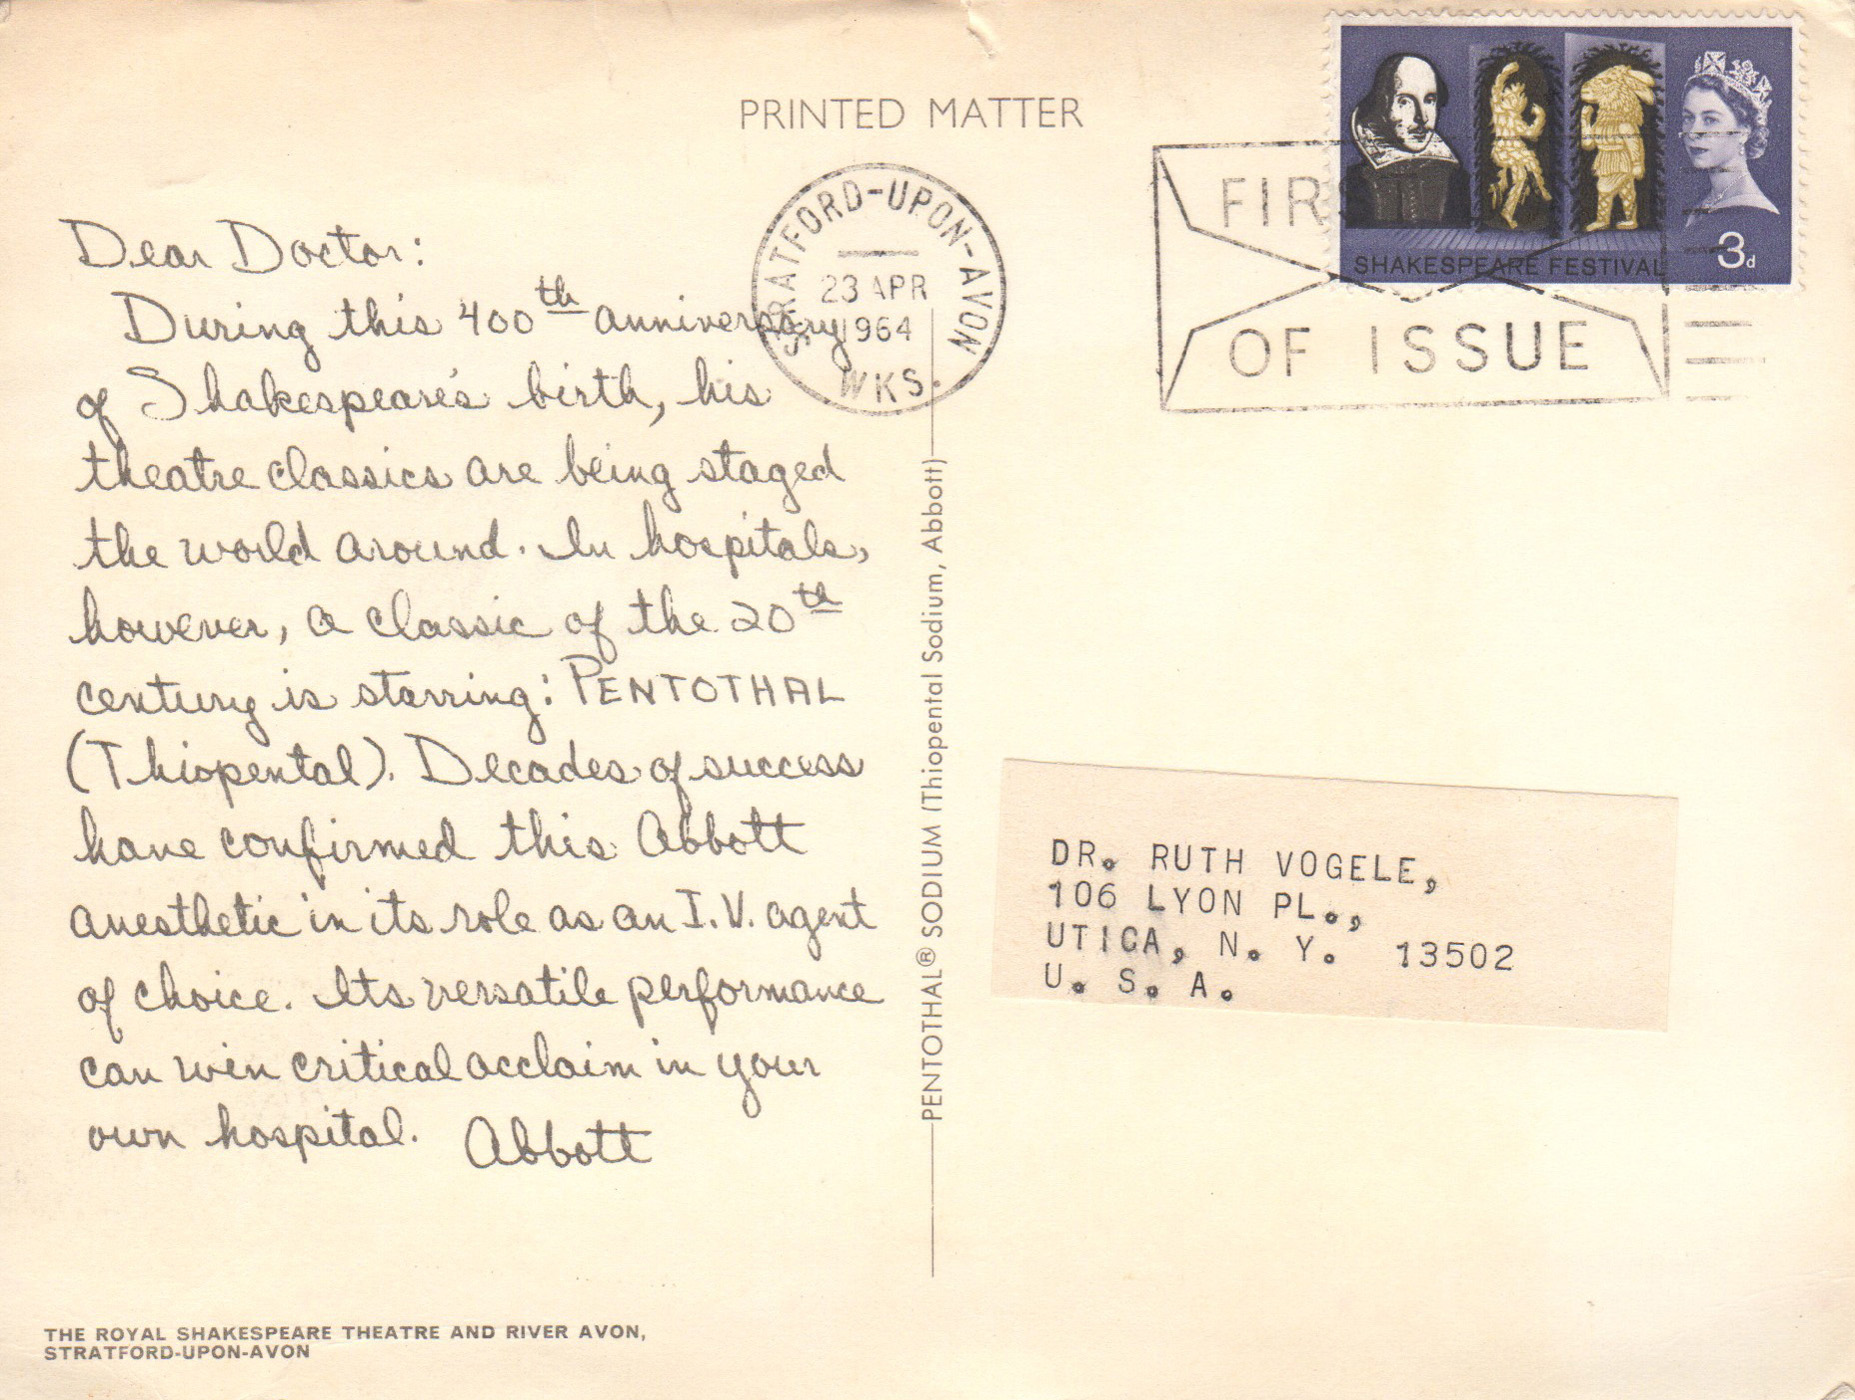 PRINTED MATTER
SHAKESPEARE FESTIVAL
3d
STRATFORD-UPON-AVON
23 APR
1964
WKS.
FIRST
OF ISSUE
Dear Doctor:
During this 400th anniversary
of Shakespeare's birth, his
theatre classics are being staged
the world around. In hospitals,
however, a classic of the 20th
century is starring: PENTOTHAL
(Thiopental). Decades of success
have confirmed this Abbott
anesthetic in its role as an I.V. agent
of choice. Its versatile performance
can win critical acclaim in your
own hospital. Abbott
PENTOTHAL® SODIUM (Thiopental Sodium, Abbott)
DR. RUTH VOGELE,
106 LYON PL.,
UTICA, N. Y. 13502
U. S. A.
THE ROYAL SHAKESPEARE THEATRE AND RIVER AVON,
STRATFORD-UPON-AVON